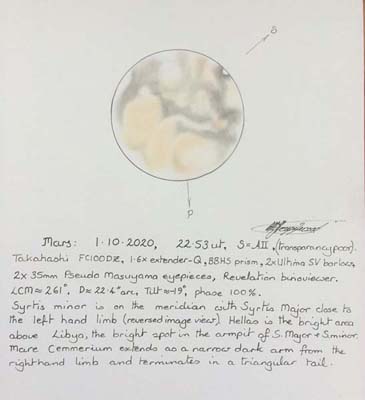 S
P
Mars: 1·10·2020, 22·53 ut, S=AII, (transparancy poor).
Takahashi FC100DZ, 1·6x extender-Q, BBHS prism, 2x Ultima SV barlow,
2x 35mm Pseudo Masuyama eyepieces, Revelation binoviewer.
LCM≈261°, D≈22·4"arc, Tilt≈-19°, phase 100%.
Syrtis minor is on the meridian with Syrtis Major close to
the left hand limb (reversed image view). Hellas is the bright area
above Libya, the bright spot in the armpit of S. Major & S. minor.
Mare Cemmerium extends as a narrow dark arm from the
righthand limb and terminates in a triangular tail.